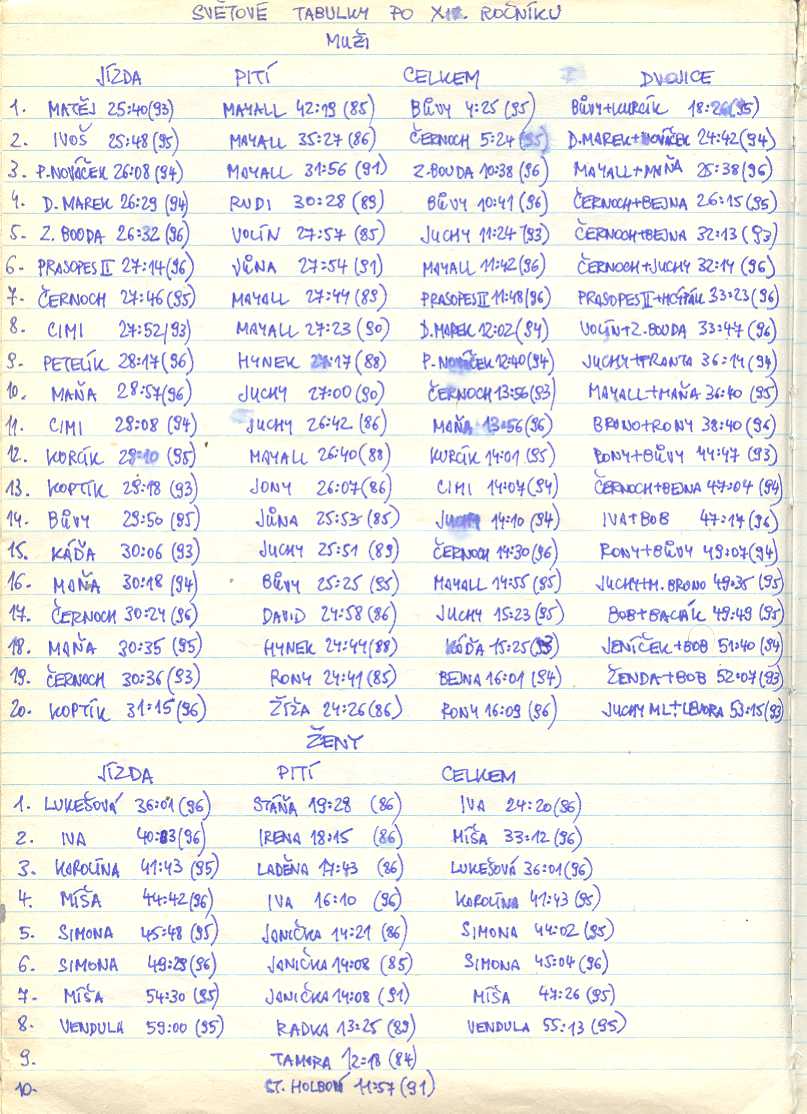 SVĚTOVÉ TABULKY PO ROČNÍKU
MUŽI
JÍZDA PITÍ CELKEM DVOJICE
1. MATĚJ 25:40(93) MAYALL 42:19 (85) BŮVY 4:25 (95) BŮVY+KURCÍK 18:26(95)
2. IVOŠ 25:48 (95) MAYALL 35:27 (86) ČERNOCH 5:24 (95) D.MAREK+NOVÁČEK 24:42(94)
3. P.NOVÁČEK 26:08 (94) MAYALL 31:56 (91) Z.BOUDA 10:38 (96) MAYALL+MAŇA 25:38(96)
4. D.MAREK 26:29 (94) RUDI 30:28 (89) BŮVY 10:41 (96) ČERNOCH+BEJNA 26:15(95)
5. Z.BOUDA 26:32 (96) VOLÍN 27:57 (85) JUCHY 11:24 (93) ČERNOCH+BEJNA 32:13 (93)
6. PRASOPES II 27:14(96) JŮNA 27:54 (91) MAYALL 11:42(96) ČERNOCH+JUCHY 32:14 (96)
7. ČERNOCH 27:46(95) MAYALL 27:44 (89) PRASOPES II 11:48(96) PRASOPES II+ 33:23(96)
8. CIMI 27:52(93) MAYALL 27:23 (90) D.MAREK 12:02(94) VOLÍN+Z.BOUDA 33:47 (96)
9. PETELÍK 28:17(96) HYNEK 27:17 (88) P.NOVÁČEK 12:40(94) JUCHY+FRANTA 36:14(94)
10. MAŇA 28:57(96) JUCHY 27:00 (90) ČERNOCH 13:56(93) MAYALL+MAŇA 36:40 (95)
11. CIMI 29:08 (94) JUCHY 26:42 (86) MAŇA 13:56(96) BRUNO+RONY 38:40 (96)
12. KURCÍK 29:10 (95) MAYALL 26:40(88) KURCÍK 14:01 (95) RONY+BŮVY 44:47 (93)
13. KOPTÍK 29:18 (93) JONY 26:07(86) CIMI 14:07(94) ČERNOCH+BEJNA 47:04 (94)
14. BŮVY 29:50 (95) JŮNA 25:53 (85) JUCHY 14:10 (94) IVA+BOB 47:17 (96)
15. KÁĎA 30:06 (93) JUCHY 25:51 (89) ČERNOCH 14:30(96) RONY+BŮVY 49:07(94)
16. MAŇA 30:18 (94) BŮVY 25:25 (95) MAYALL 14:55 (95) JUCHY+M.BRUNO 49:35 (95)
17. ČERNOCH 30:24 (96) DAVID 24:58 (86) JUCHY 15:23 (95) BOB+BACHÁK 49:49 (95)
18. MAŇA 30:35 (95) HYNEK 24:44(88) KÁĎA 15:25(93) JENÍČEK+BOB 51:40 (94)
19. ČERNOCH 30:36 (93) RONY 24:41 (85) BEJNA 16:01 (94) ŽENDA+BOB 52:07 (93)
20. KOPTÍK 31:15 (96) ŽÍŽA 24:26 (86) RONY 16:09 (96) JUCHY ML.+LEVORA 53:15(93)
ŽENY
JÍZDA PITÍ CELKEM
1. LUKEŠOVÁ 36:01 (96) STÁŇA 19:28 (86) IVA 24:20(96)
2. IVA 40:03(96) IRENA 18:15 (86) MÍŠA 33:12 (96)
3. KAROLÍNA 41:43 (95) LADĚNA 17:43 (86) LUKEŠOVÁ 36:01(96)
4. MÍŠA 44:42(96) IVA 16:10 (96) KAROLÍNA 41:43 (95)
5. SIMONA 45:48 (95) JANIČKA 14:21 (86) SIMONA 44:02 (95)
6. SIMONA 49:29(96) JANIČKA 14:08 (85) SIMONA 45:04 (96)
7. MÍŠA 54:30 (95) JANIČKA 14:08 (91) MÍŠA 47:26 (95)
8. VENDULA 59:00 (95) RADKA 13:25 (89) VENDULA 55:13 (95)
9. TAMARA 12:18 (84)
10. ST. 11:57(91)